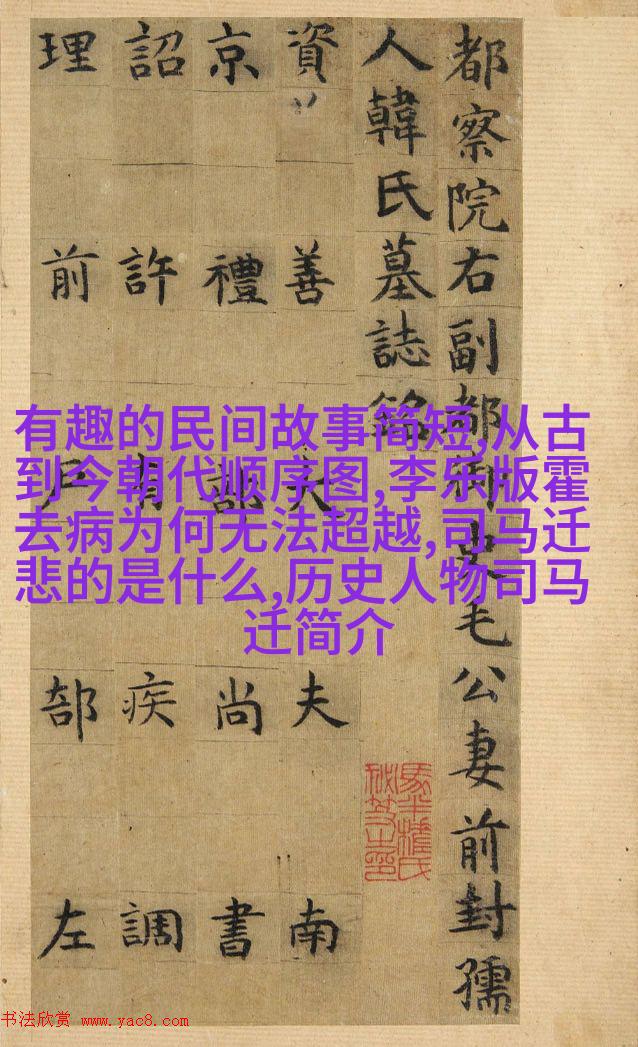 都察院右副都御史毛公妻前封孺
人韓氏墓誌銘
資善大夫南
京禮部尚書
詔許疾調
理前戶部左
有趣的民间故事简短,从古
到今朝代顺序图,李乐版霍
去病为何无法超越,司马迁
悲的是什么,历史人物司马
迁简介
书法欣赏 www.yac8.com